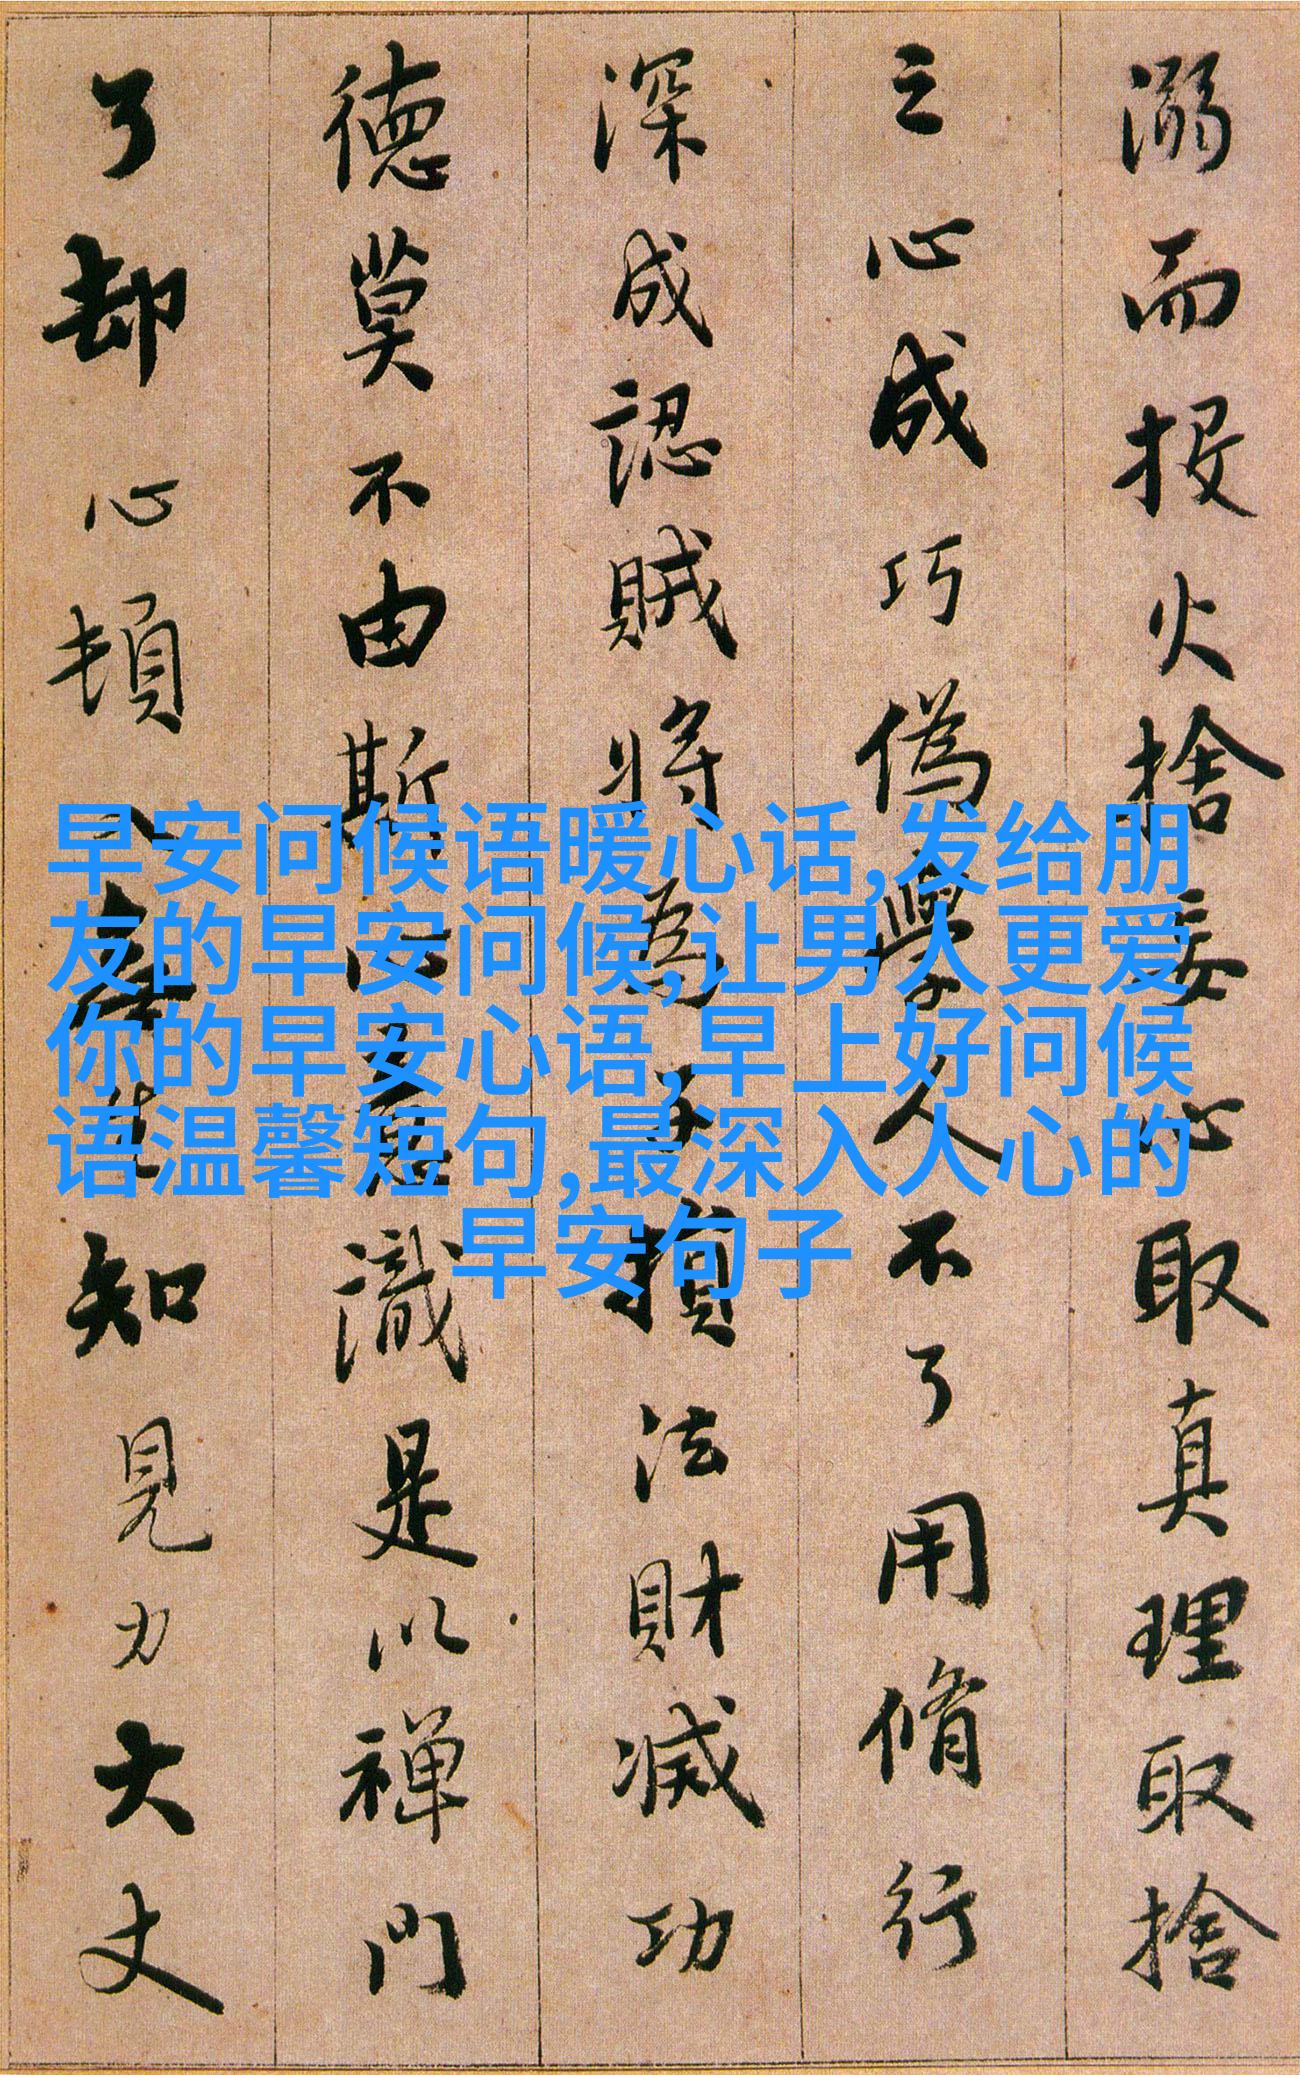 溺而投火捨妄心取真理取捨
之心成巧偽學人不了用脩行
深成認賊將為子損法財滅功
德莫不由斯心意識是以禪門
了却心頓入無生知見力大丈
早安问候语暖心话,发给朋
友的早安问候,让男人更爱
你的早安心语,早上好问候
语温馨短句,最深入人心的
早安句子